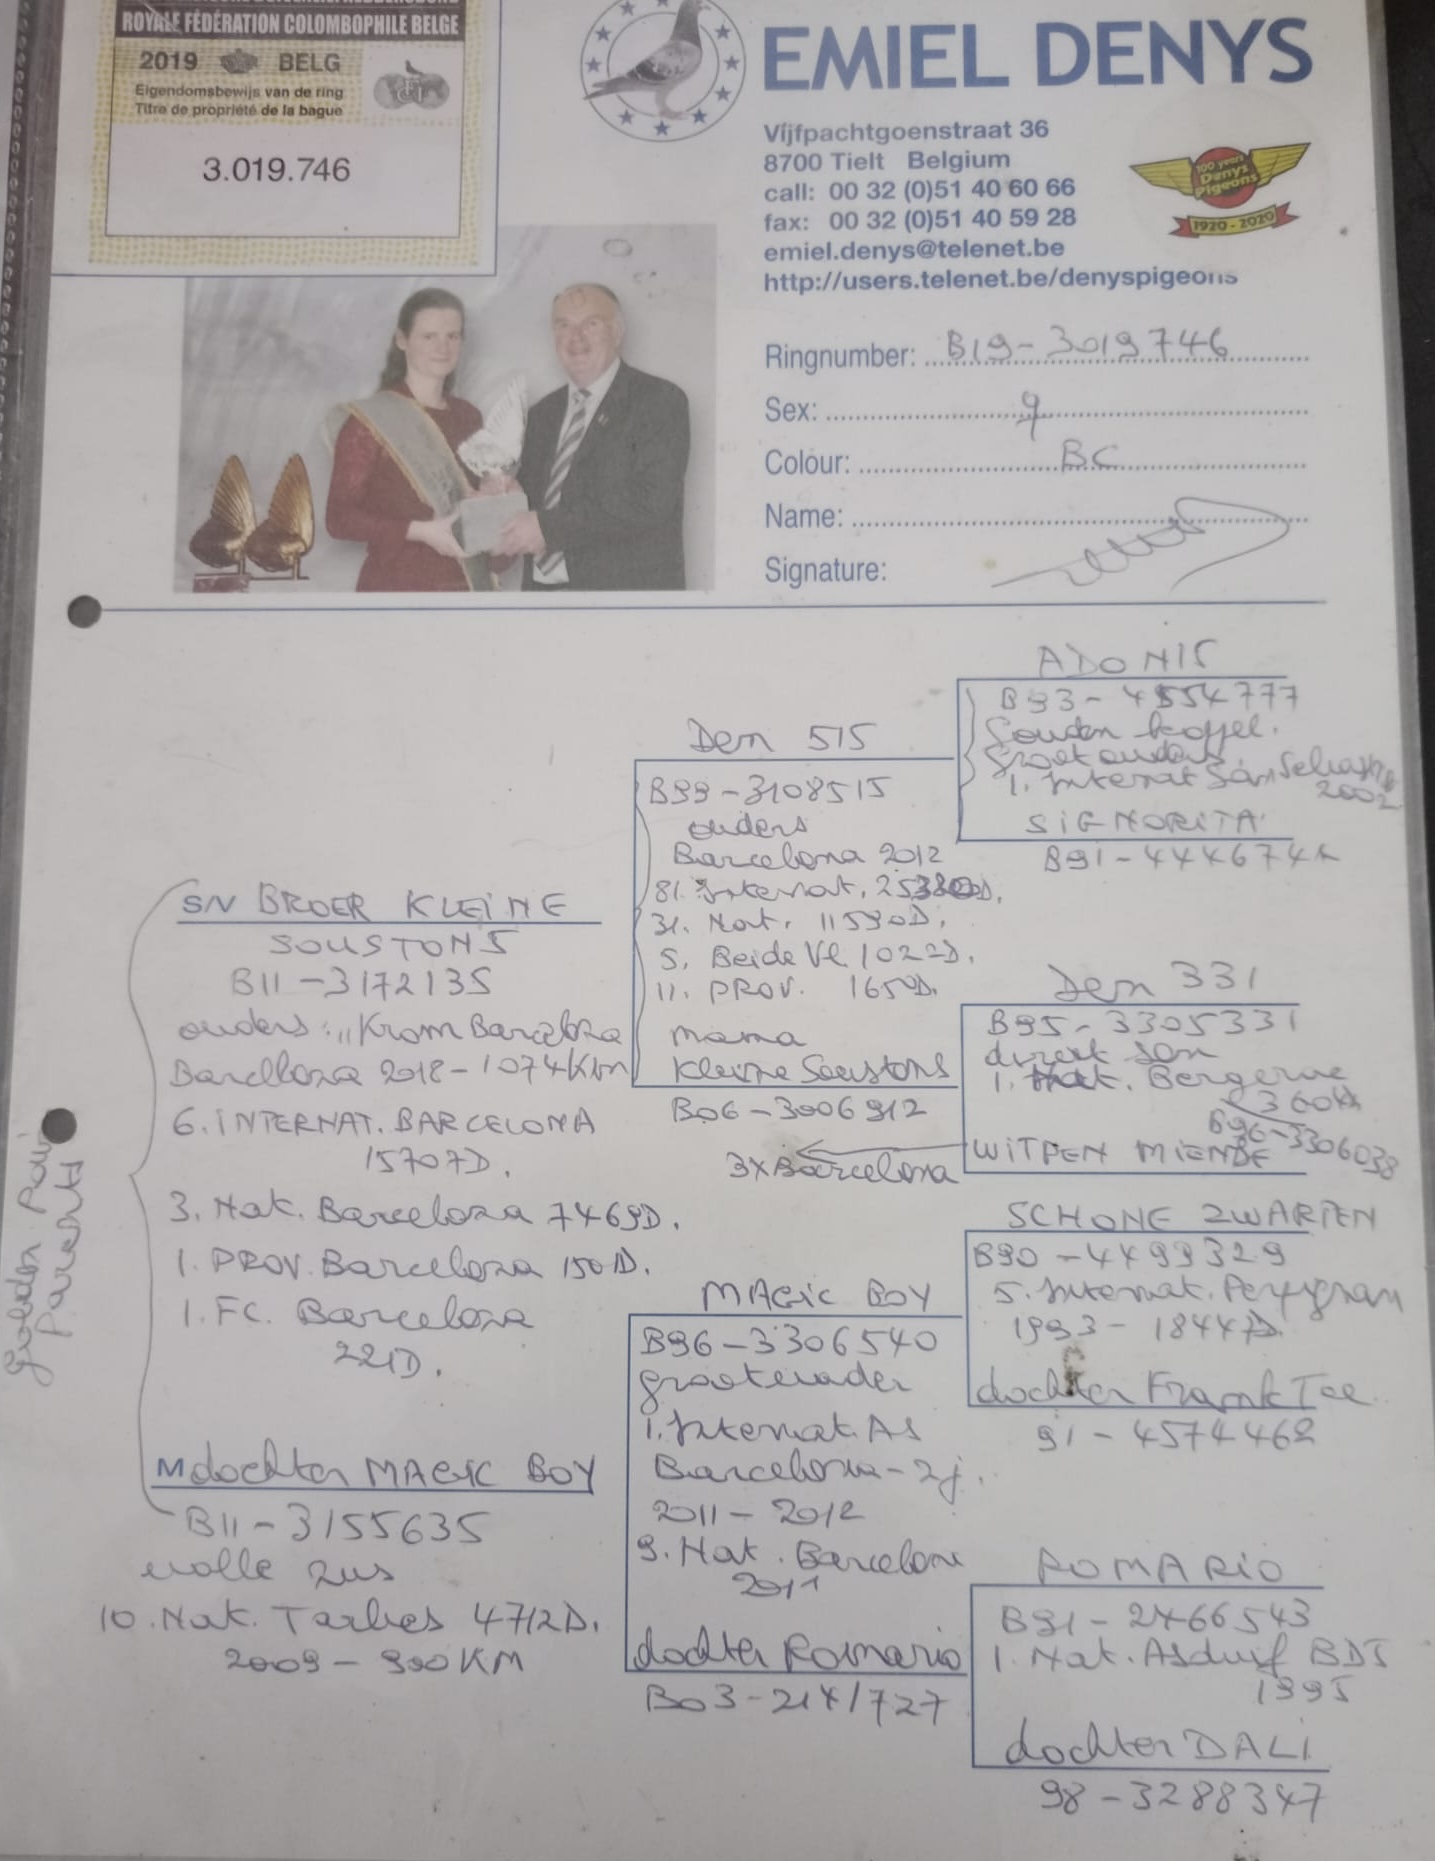 ROYALE FÉDÉRATION COLOMBOPHILE BELGE
2019 BELG
Eigendomsbewijs van de ring
Titre de propriété de la bague
3.019.746
EMIEL DENYS
Vijfpachtgoenstraat 36
8700 Tielt Belgium
call: 00 32 (0)51 40 60 66
fax: 00 32 (0)51 40 59 28
emiel.denys@telenet.be
http://users.telenet.be/denyspigeons
100 years
Denys
Pigeons
1920 - 2020
Ringnumber: B19-3019746
Sex: ♀
Colour: BC
Name:
Signature:
Golden Pair
Parents
SN BROER KLEINE
SOUSTONS
B11-3172135
ouders: „Krom Barcelona
Barcelona 2018-1074Km
6. INTERNAT. BARCELONA
15707D.
3. Nat. Barcelona 7469D.
1. PROV. Barcelona 150D.
1. FC. Barcelona
221D.
M dochter MAGIC BOY
B11-3155635
volle zus
10. Nat. Tarbes 4712D.
2009-900KM
Den 515
B99-3108515
ouders
Barcelona 2012
81. Internat.
31. Nat. 11590D.
5. Beide Vl 1022D.
11. PROV. 165D.
mama
Kleine Soustons
B06-3006912
3X Barcelona
MAGIC BOY
B96-3306540
grootvader
1. Internat. As
Barcelona-2j.
2011-2012
9. Nat. Barcelona
2011
dochter Romario
B03-2141727
ADONIS
B93-4554777
Gouden koppel.
Grootouders
1. Internat San Sebastian
2002
SIGNORITA
B91-4446741
Den 331
B95-3305331
direkt son
1. Nat. Bergerac
B96-3306038
WITPEN MIENDE
SCHONE ZWARTEN
B90-4499329
5. Internat. Perpignan
1993-18447D.
dochter Frank Tee
91-4574462
ROMARIO
B91-2466543
1. Nat. Asduif BDS
1995
dochter DALI
98-3288347